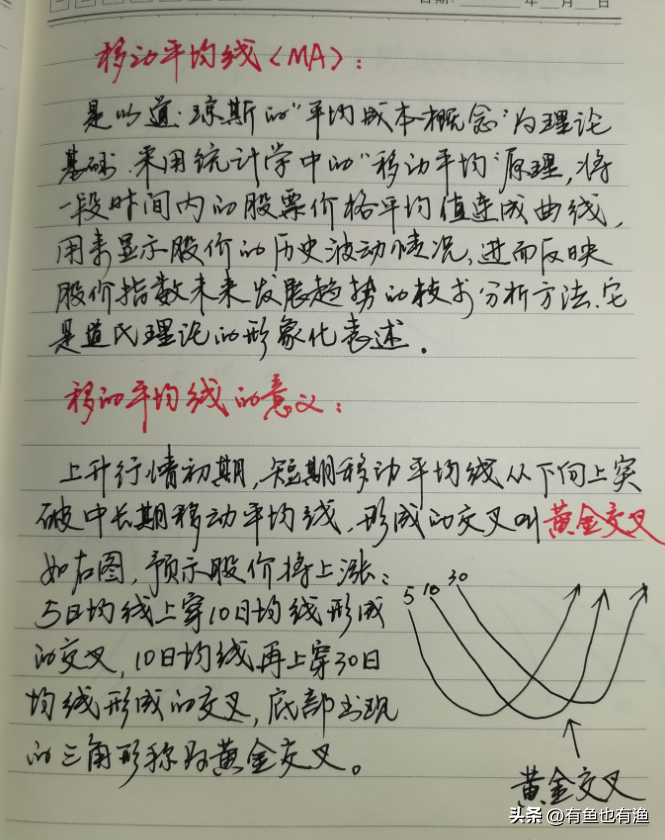 日期: 年 月 日
移动平均线(MA):
是以道·琼斯的"平均成本概念"为理论
基础,采用统计学中的"移动平均"原理,将
一段时间内的股票价格平均值连成曲线,
用来显示股价的历史波动情况,进而反映
股价指数未来发展趋势的技术分析方法.它
是道氏理论的形象化表述。
移动平均线的意义:
上升行情初期,短期移动平均线从下向上突
破中长期移动平均线,形成的交叉叫黄金交叉
如右图,预示股价将上涨:
5 10 30
5日均线上穿10日均线形成
的交叉,10日均线再上穿30日
均线形成的交叉,底部出现
的三角形称为黄金交叉。
黄金交叉
头条 @有鱼也有渔